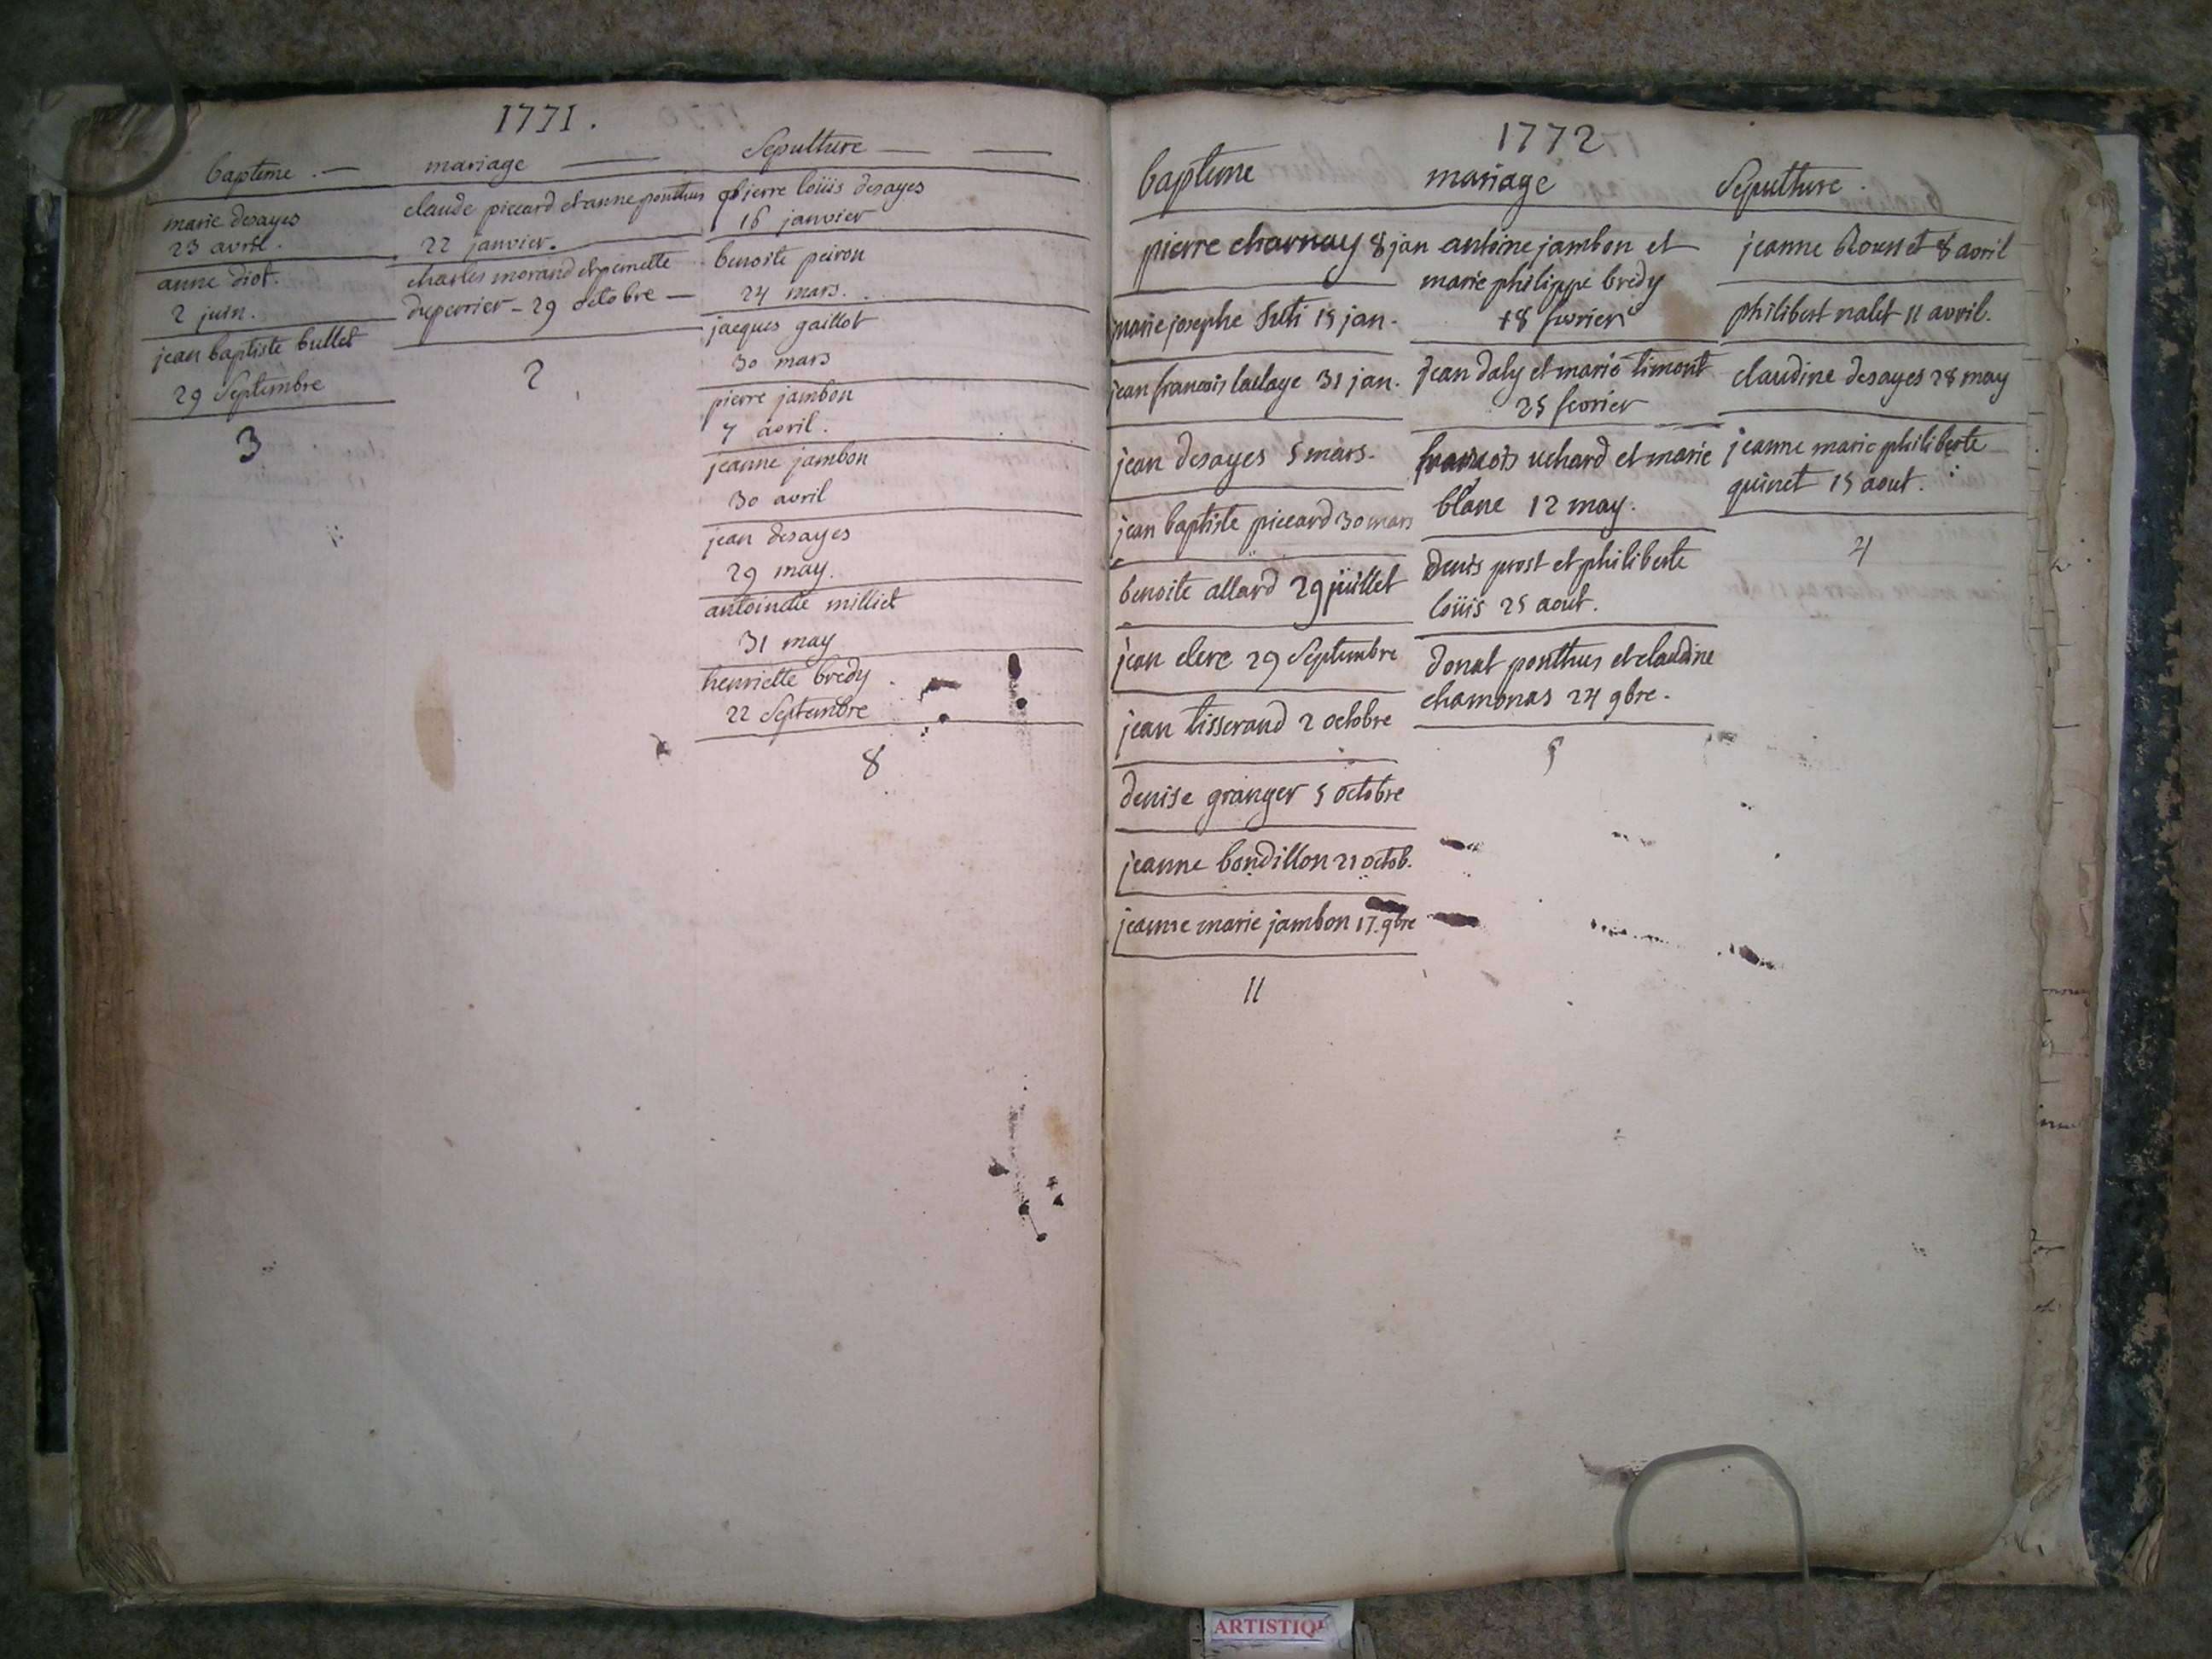 1771.
bapteme.
marie desayes
23 avril.
anne diot.
2 juin.
jean baptiste buttet
29 Septembre
3
mariage
claude piccard et anne ponthus
22 janvier.
charles morand et pernette
duperrier - 29 octobre -
2
Sepulture
pierre loüis desayes
16 janvier
benoite peiron
24 mars.
jacques gaillot
30 mars
pierre jambon
7 avril.
jeanne jambon
30 avril
jean desayes
29 may.
antoinette milliet
31 may
henriette bredy
22 Septembre
8
1772
bapteme
pierre charnay 8 jan
marie josephe 15 jan.
jean francois 31 jan.
jean desayes 5 mars.
jean baptiste piccard 30 mars
benoite allard 29 juillet
jean clerc 29 Septembre
jean tisserand 2 octobre
denise granger 5 octobre
jeanne bondillon 21 octob.
jeanne marie jambon 17. 9bre
11
mariage
antoine jambon et
marie philippe bredy
18 fevrier
jean daly et marie timont
25 fevrier
francois uchard et marie
blanc 12 may.
denis prost et philiberte
loüis 25 aout.
donat ponthus et claudine
chamonas 24 9bre.
5
Sepulture.
jeanne 8 avril
philibert nalet 11 avril.
claudine desayes 28 may
jeanne marie philiberte
quinet 15 aout.
4
ARTISTIQ